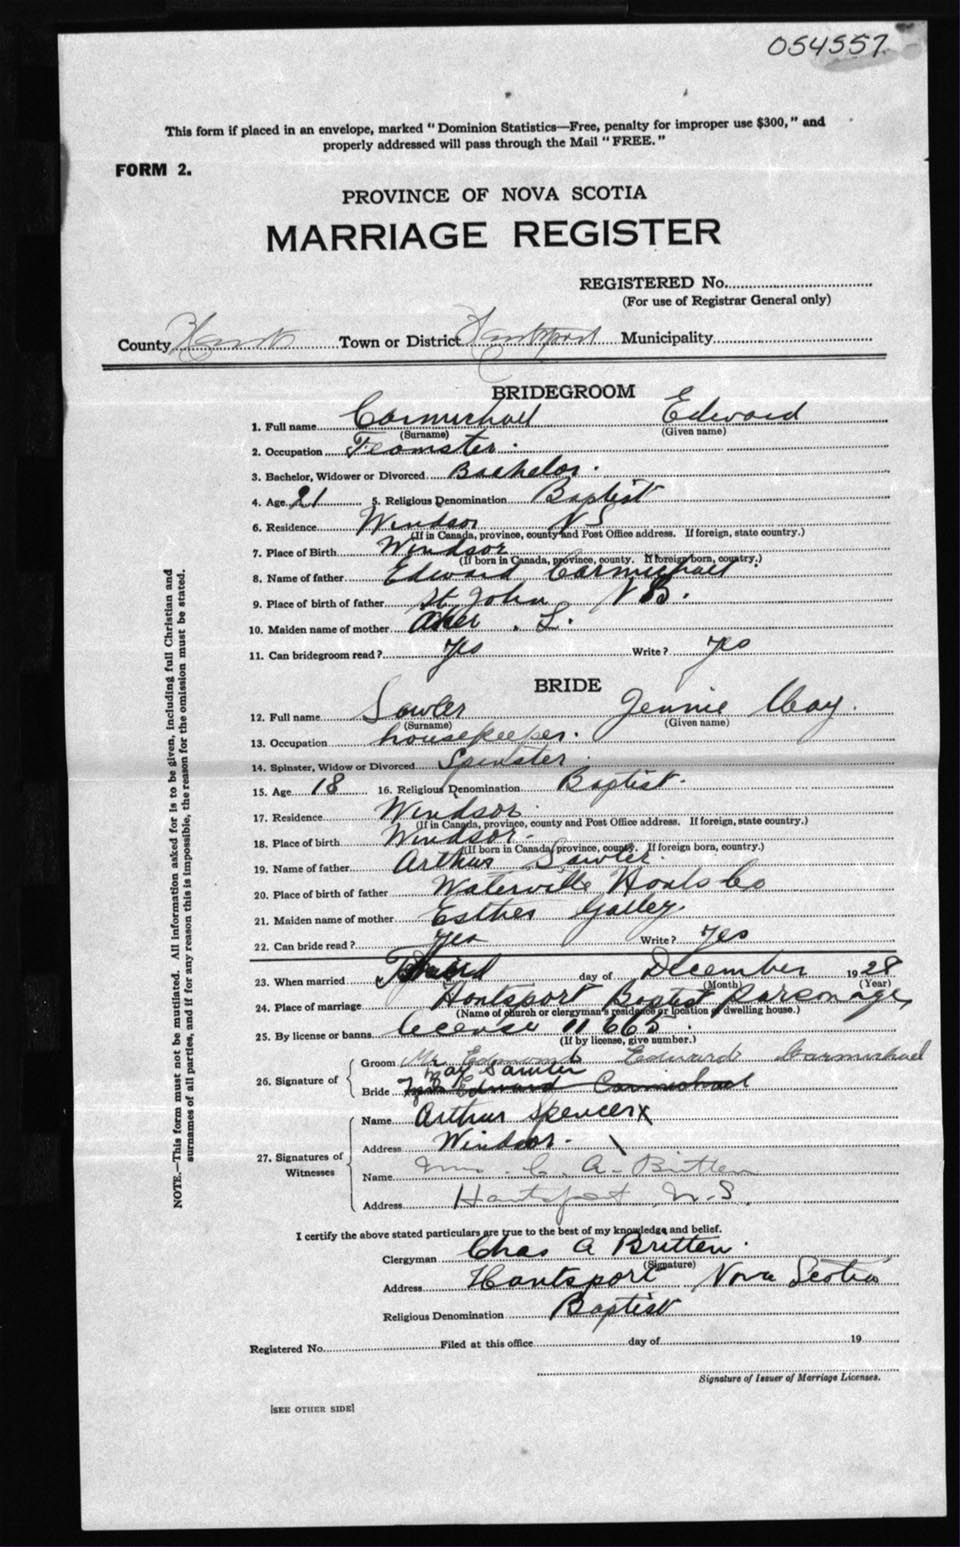 054557
This form if placed in an envelope, marked "Dominion Statistics—Free, penalty for improper use $300," and
properly addressed will pass through the Mail "FREE."
FORM 2.
PROVINCE OF NOVA SCOTIA
MARRIAGE REGISTER
REGISTERED No.
(For use of Registrar General only)
County Hants Town or District Hantsport Municipality
BRIDEGROOM
1. Full name Carmichael Edward
(Surname) (Given name)
2. Occupation Teamster.
3. Bachelor, Widower or Divorced Bachelor.
4. Age 21 5. Religious Denomination Baptist
6. Residence Windsor NS
(If in Canada, province, county and Post Office address. If foreign, state country.)
7. Place of Birth Windsor
(If born in Canada, province, county. If foreign born, country.)
8. Name of father Edward Carmichael.
9. Place of birth of father St. John NB.
10. Maiden name of mother L.
11. Can bridegroom read? Yes Write? Yes
BRIDE
12. Full name Sawler Jennie May.
(Surname) (Given name)
13. Occupation housekeeper.
14. Spinster, Widow or Divorced Spinster.
15. Age 18 16. Religious Denomination Baptist.
17. Residence Windsor.
(If in Canada, province, county and Post Office address. If foreign, state country.)
18. Place of birth Windsor.
(If born in Canada, province, county. If foreign born, country.)
19. Name of father Arthur Sawler.
20. Place of birth of father Waterville Hants Co
21. Maiden name of mother Esther
22. Can bride read? Yes Write? Yes
23. When married day of December 1928
(Month) (Year)
24. Place of marriage Hantsport Baptist parsonage,
(Name of church or clergyman's residence or location of dwelling house.)
25. By license or banns license 11665.
(If by license, give number.)
26. Signature of
Groom Mr Edmond Edward Carmichael
May Sawler
Bride Edward Carmichael
27. Signatures of Witnesses
Name Arthur Spencer x
Address Windsor.
Name Mrs. C. A. Britten
Address Hantsport, N.S.
I certify the above stated particulars are true to the best of my knowledge and belief.
Clergyman Chas A Britten.
(Signature)
Address Hantsport Nova Scotia
Religious Denomination Baptist
Registered No. Filed at this office day of 19
Signature of Issuer of Marriage Licenses.
[SEE OTHER SIDE]
NOTE.—This form must not be mutilated. All information asked for is to be given, including full Christian and
surnames of all parties, and if for any reason this is impossible, the reason for the omission must be stated.